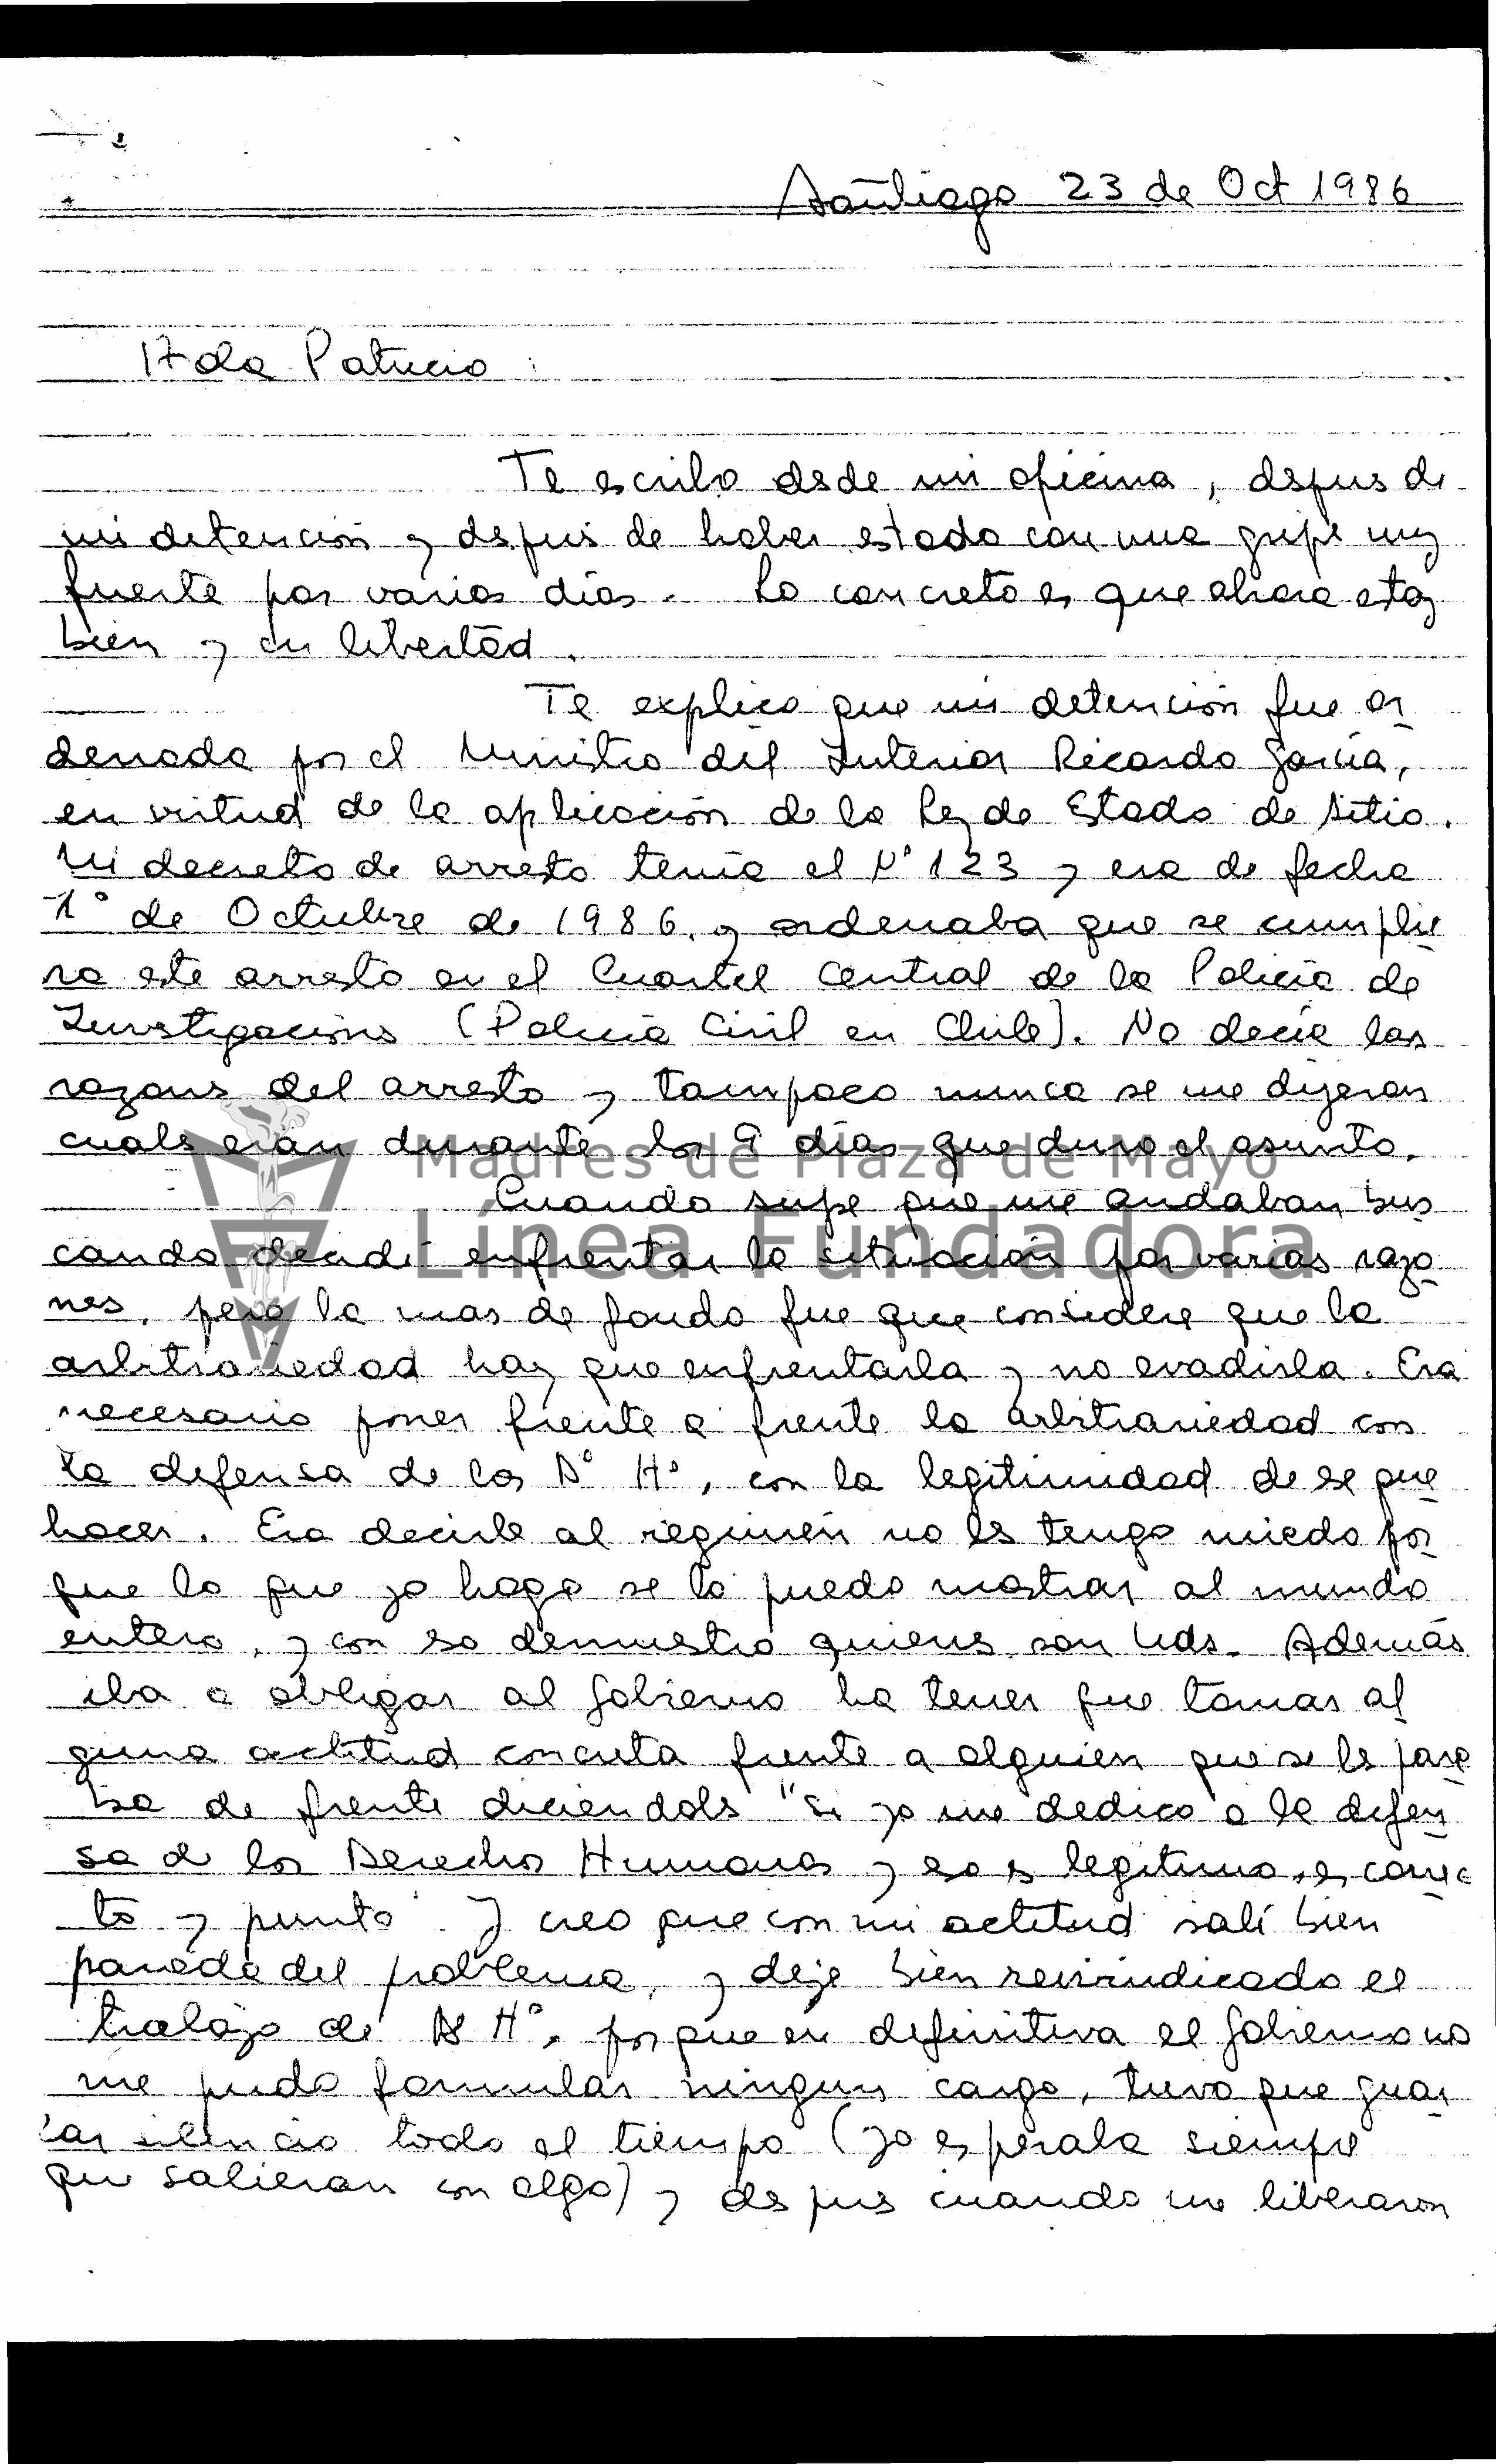 Santiago 23 de Oct 1986
Hda Patricia :
Te escribo desde mi oficina, despues de
mi detención y despues de haber estado con una gripe muy
fuerte por varios días. Lo concreto es que ahora estoy
bien y en libertad.
Te explico que mi detención fue or
denada por el Ministro del Interior Ricardo García,
en virtud de la aplicación de la Ley de Estado de Sitio.
Mi decreto de arresto tenía el Nº 123 y era de fecha
1º de Octubre de 1986, y ordenaba que se cumplie
ra este arresto en el Cuartel Central de la Policía de
Investigaciones (Policía Civil en Chile). No decía las
razones del arresto y tampoco nunca se me dijeron
cuales eran durante los 9 días que duro el asunto.
Madres de Plaza de Mayo
Cuando supe que me andaban bus
Línea Fundadora
cando decidí enfrentar la situación por varias razo
nes, pero la mas de fondo fue que considere que la
arbitrariedad hay que enfrentarla y no evadirla. Era
necesario poner frente a frente la arbitrariedad con
la defensa de los Dº Hº, con la legitimidad de ese que
hacer. Era decirle al regimen no les tengo miedo por
que lo que yo hago se lo puedo mostrar al mundo
entero, y con eso demuestro quienes son Uds. Además
iba a obligar al Gobierno ha tener que tomar al
guna actitud concreta frente a alguien que se les para
ba de frente diciendoles "Si yo me dedico a la defen
sa de los Derechos Humanos y eso es legitimo, es correc
to y punto". Y creo que con mi actitud salí bien
parada del problema, y deje bien reivindicado el
trabajo de Dº Hº, porque en definitiva el Gobierno no
me pudo formular ningun cargo, tuvo que guar
dar silencio todo el tiempo (yo esperaba siempre
que salieran con algo) y despues cuando me liberaron